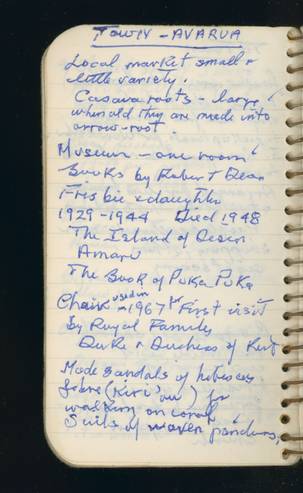 TOWN - AVARUA
Local market small &
little variety.
Casava roots - large
when old they are made into
arrow-root.
Museum - one room
Books by Robert Dean
Frisbie & daughter
1929-1944 Died 1948
The Island of Desire
Amaru
The Book of Puka Puka
Chairs used in 1967 for First visit
by Royal Family
Duke & Duchess of Kent
Made sandals of hibiscus
(Kiri'au) for
walking on coral
Suits of woven pandanus,